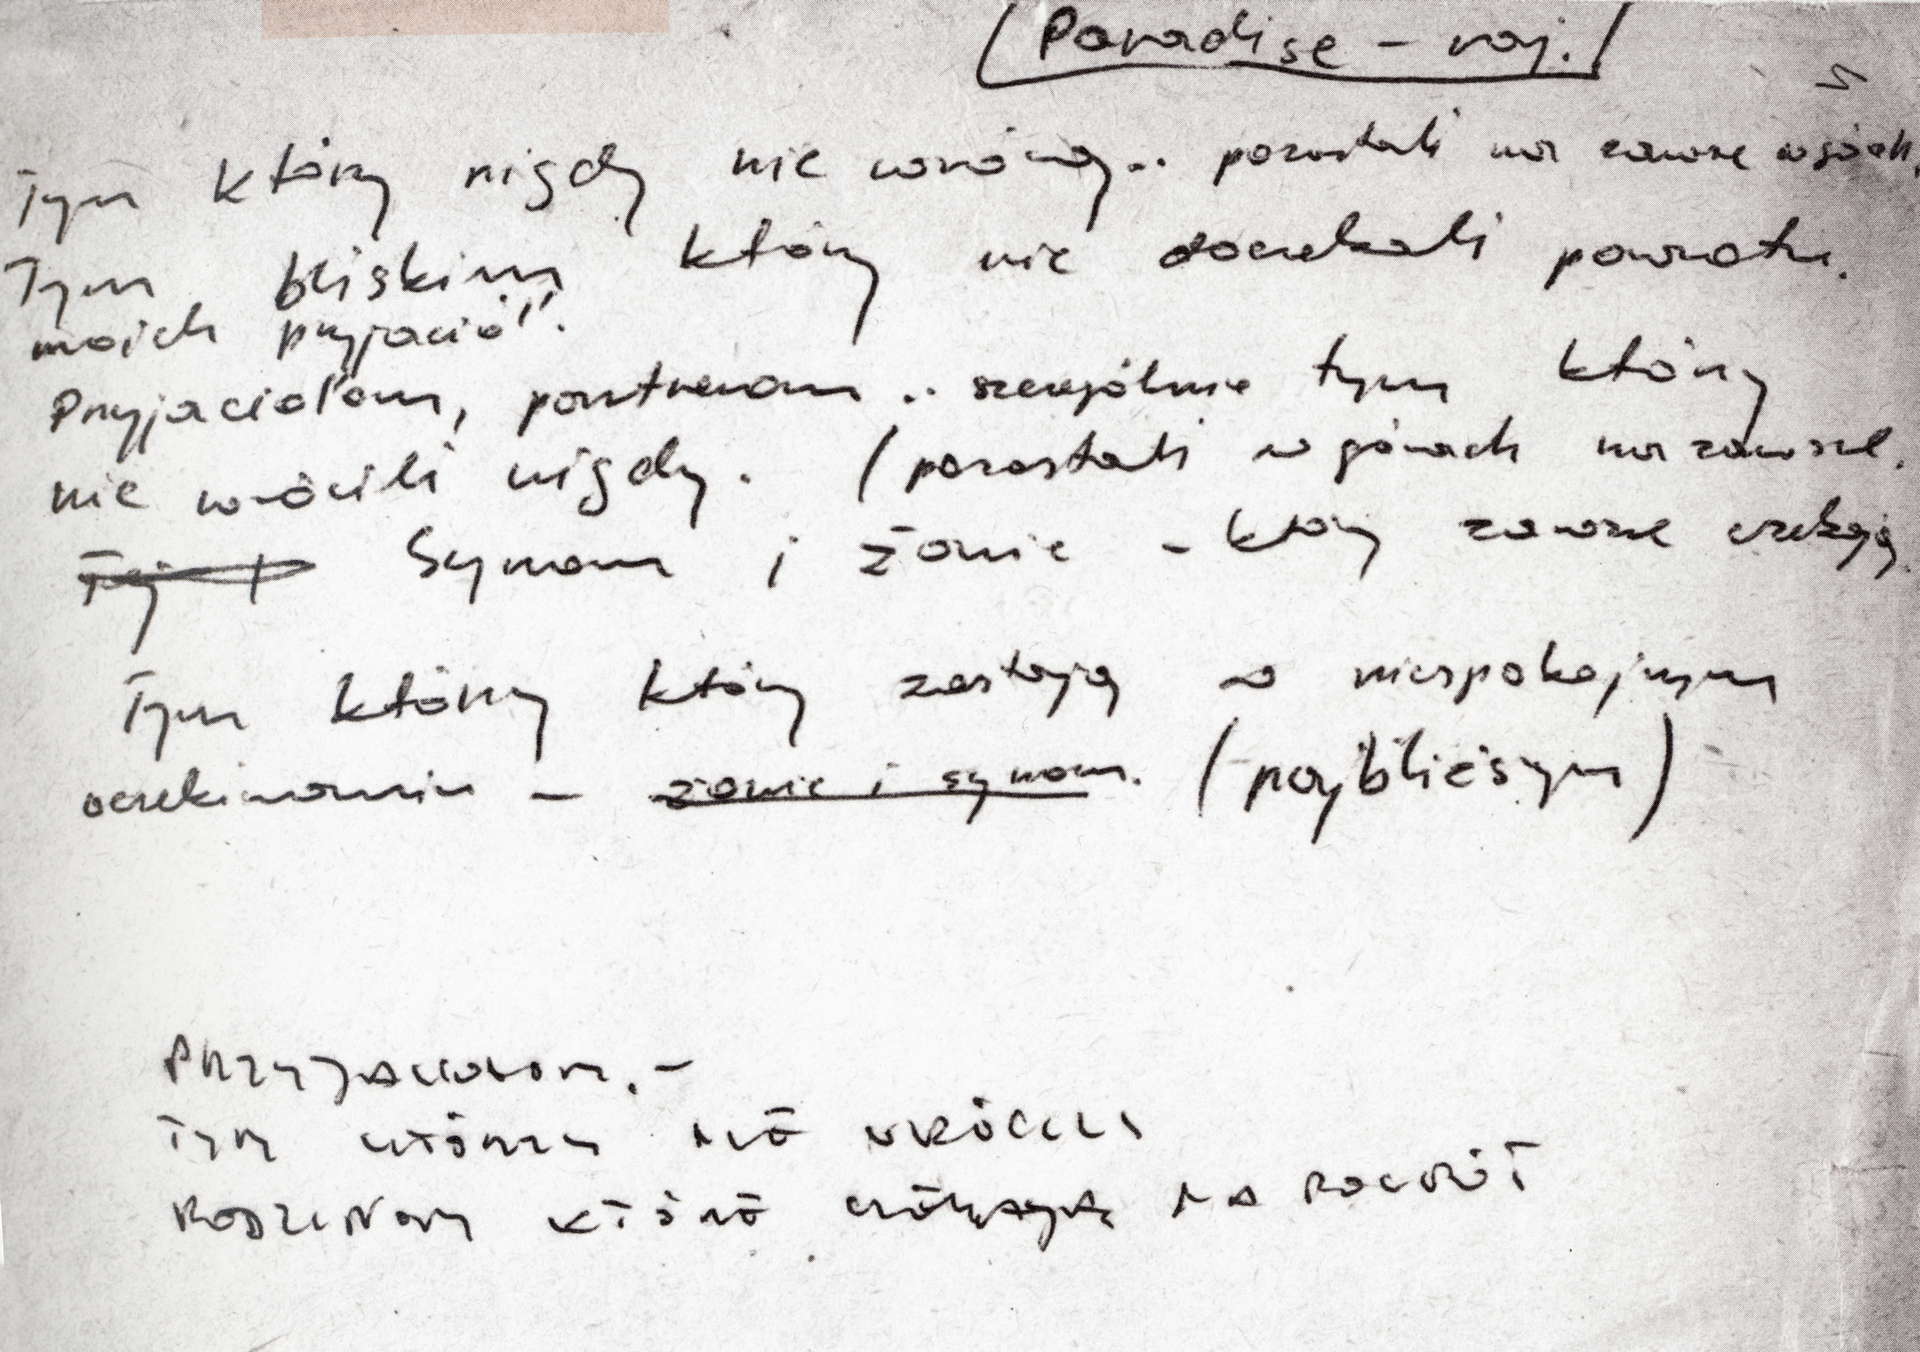 Paradise – raj.
Tym którzy nigdy nie wrócą.. pozostali na zawsze w górach.
Tym bliskim którzy nie doczekali powrotu.
moich przyjaciół.
Przyjaciołom, partnerom .. szczególnie tym którzy
nie wrócili nigdy. (pozostali w górach na zawsze.
Synom i żonie – którzy zawsze czekają.
Tym którzy którzy zostają w niespokojnym
oczekiwaniu – żonie i synom. (najbliższym)
PRZYJACIOŁOM. –
TYM KTÓRZY NIE WRÓCILI
RODZINOM KTÓRE CZEKAJĄ NA POWRÓT